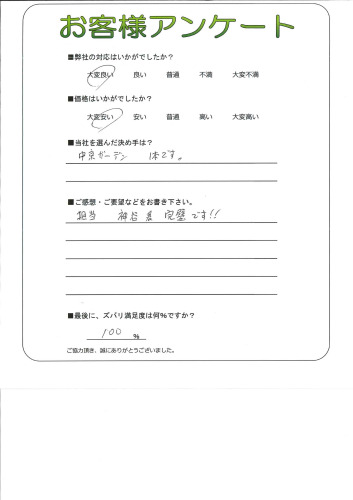 お客様アンケート
■弊社の対応はいかがでしたか?
大変良い 良い 普通 不満 大変不満
■価格はいかがでしたか?
大変安い 安い 普通 高い 大変高い
■当社を選んだ決め手は?
中京ガーデン 1本です。
■ご感想・ご要望などをお書き下さい。
担当 神谷 完璧です!!
■最後に、ズバリ満足度は何%ですか?
100 %
ご協力頂き、誠にありがとうございました。